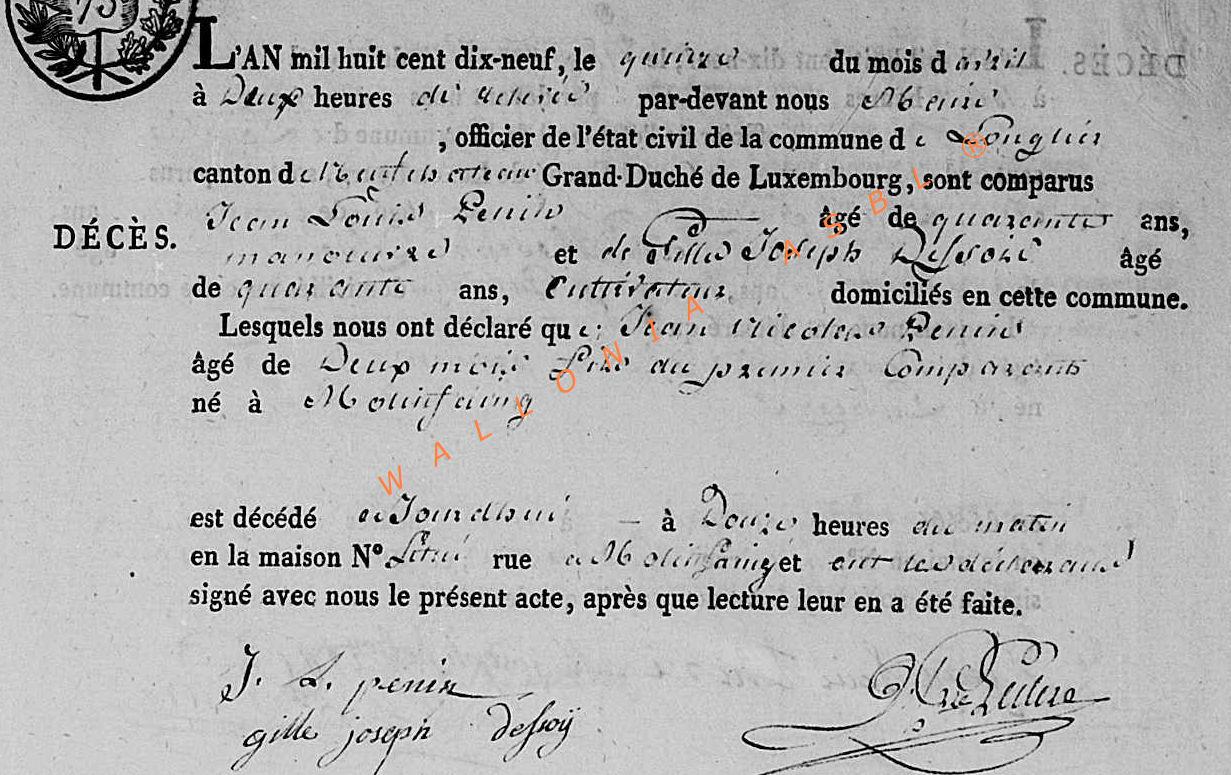 75
L'AN mil huit cent dix-neuf, le quinze du mois d avril
à Deux heures de relevée par-devant nous Maire
, officier de l'état civil de la commune d e Longlier
canton d e Neufchateau Grand-Duché de Luxembourg, sont comparus
Jean Louis Penin âgé de quarante ans,
DÉCÈS.
manouvre et de Gille Joseph Dessoie âgé
de quarante ans, Cultivateur domiciliés en cette commune.
Lesquels nous ont déclaré qu e Jean Nicolas Penin
âgé de Deux mois fils du premier Comparant
né à Molinfaing
est décédé aujourdhui à Douze heures du matin
en la maison N° rue a Molinfaing et ont les déclarans
signé avec nous le présent acte, après que lecture leur en a été faite.
J. L. penin
gille joseph dessoÿ
WALLONIA ASBL ®